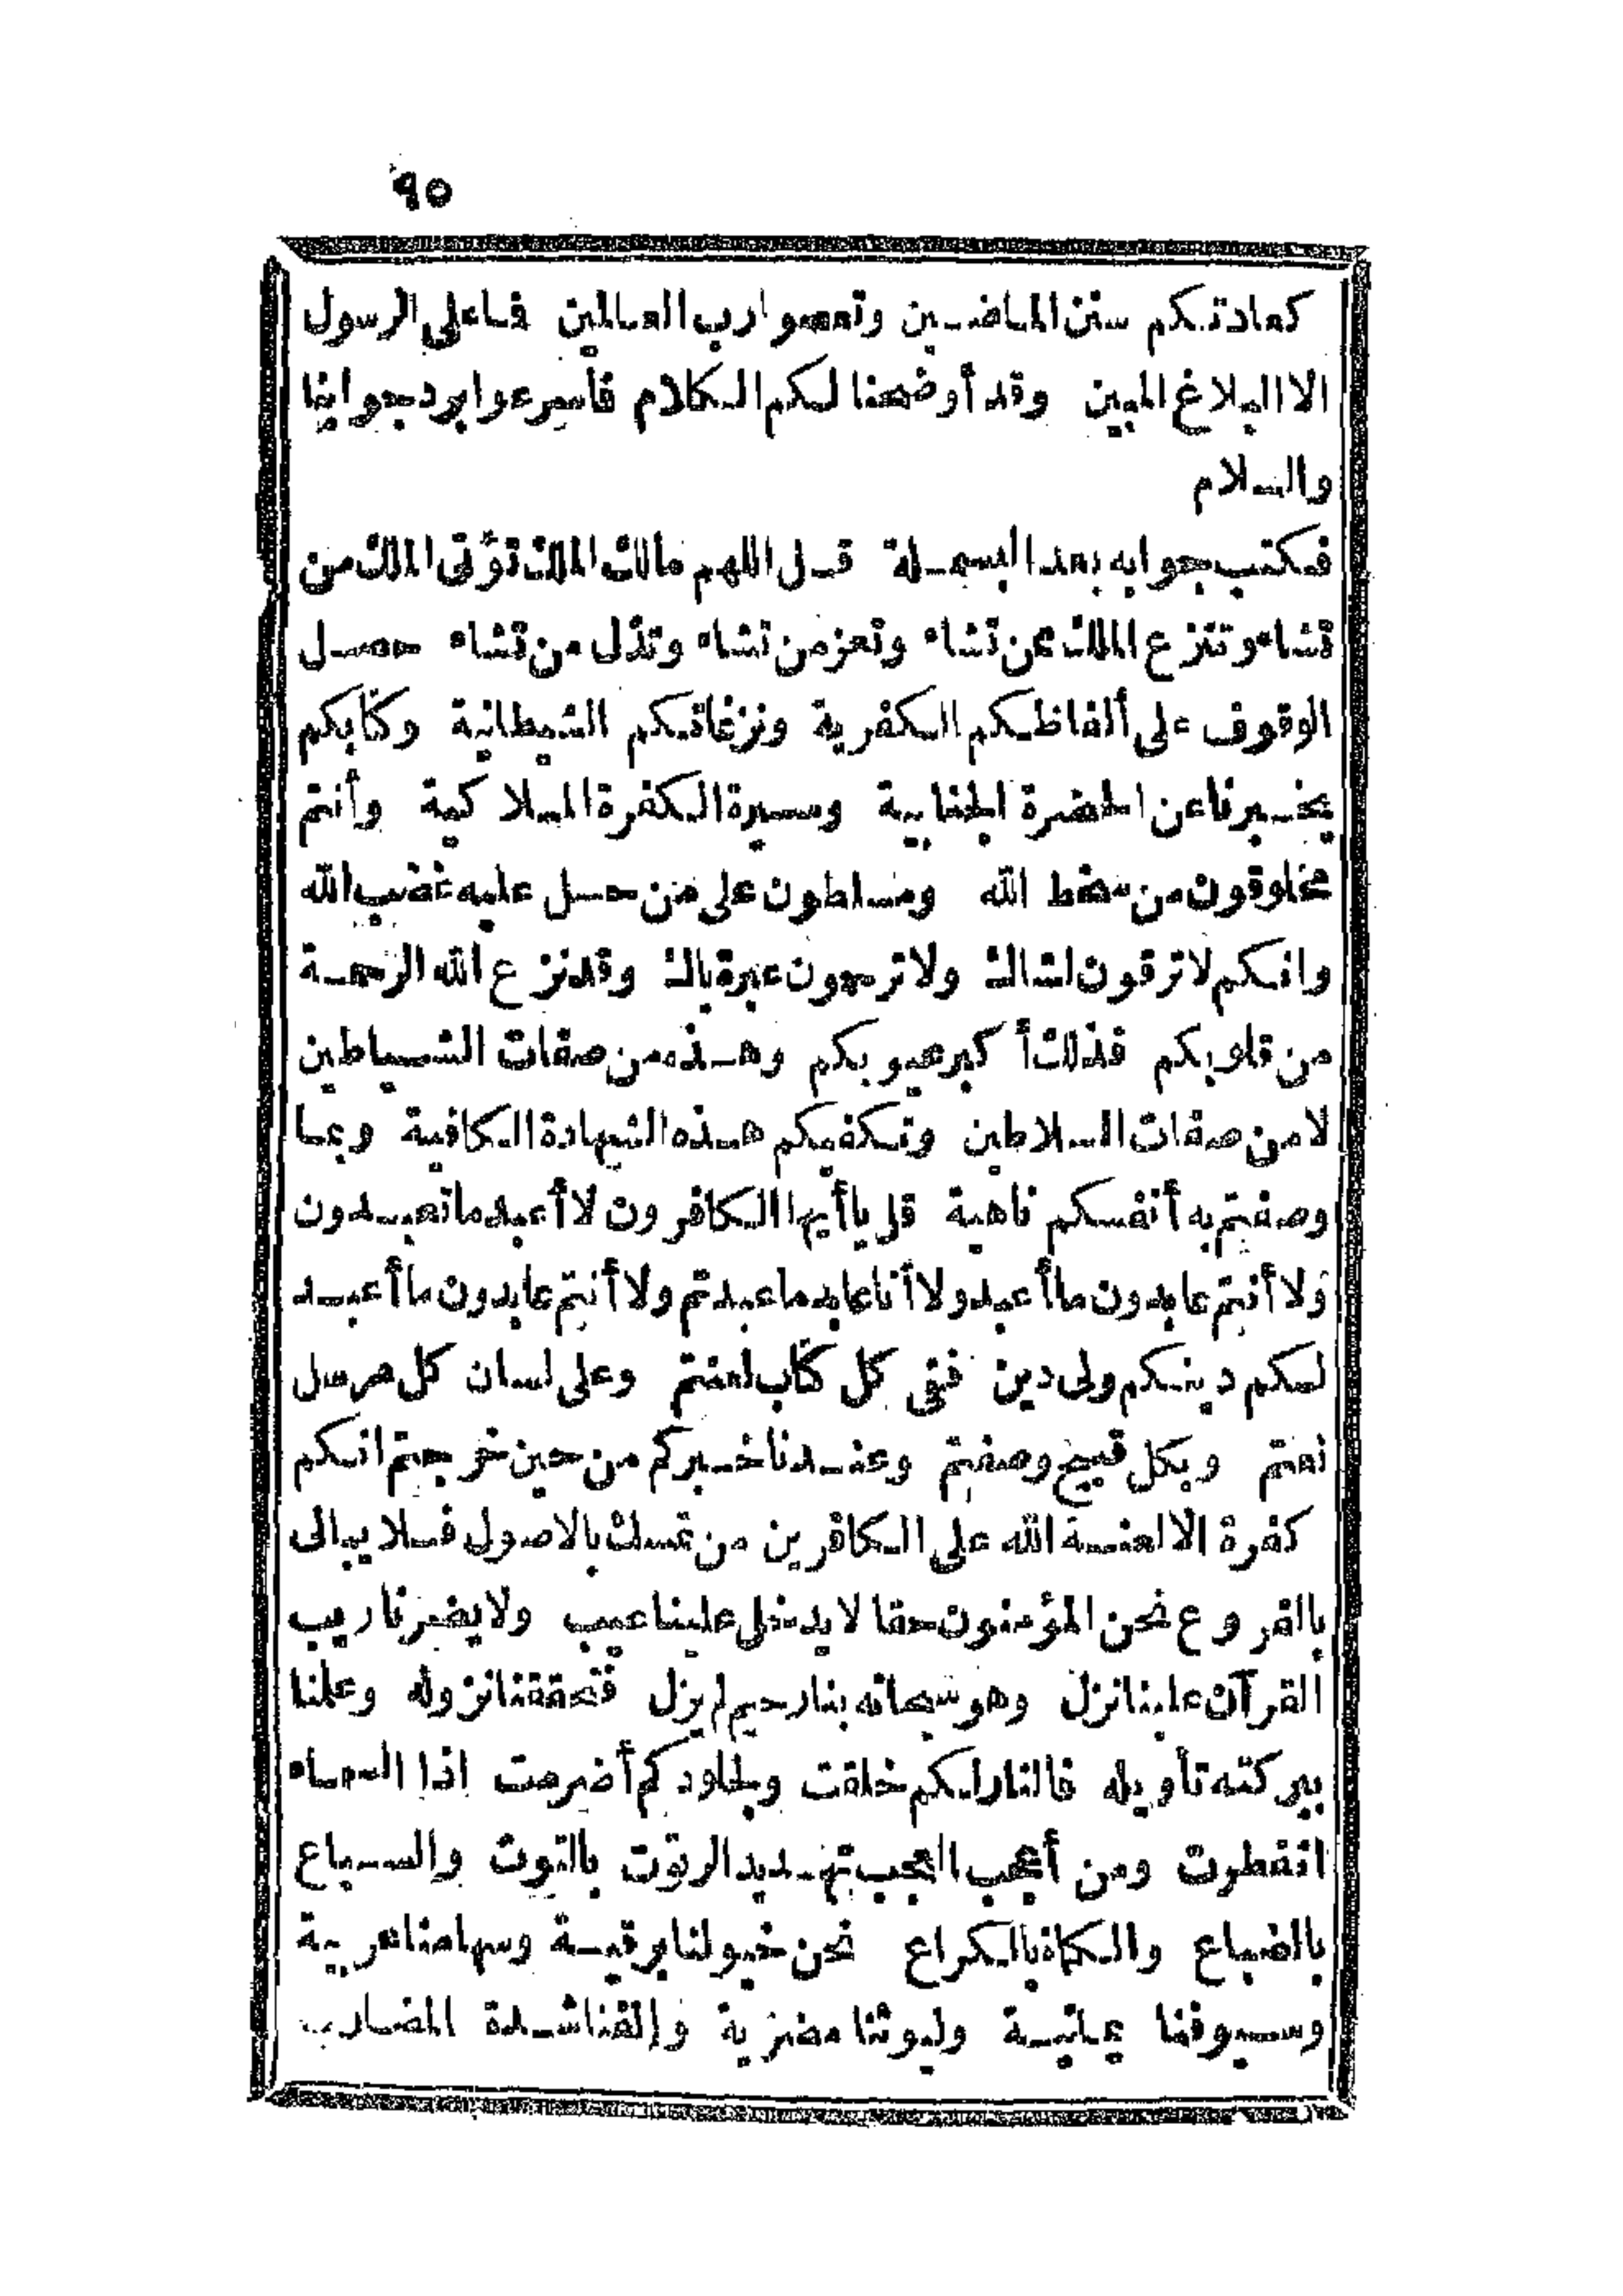 ٩٥
كعادتكم سنن الماضين وتعصوا رب العالمين فما على الرسول
الا البلاغ المبين وقد أوضحنا لكم الكلام فأسرعوا برد جوابنا
والسلام
فكتب جوابه بعد البسملة قل اللهم مالك الملك تؤتى الملك من
تشاء وتنزع الملك ممن تشاء وتعز من تشاء وتذل من تشاء حصل
الوقوف على ألفاظكم الكفرية ونزغاتكم الشيطانية وكتابكم
يخبرنا عن الحضرة الجنابية وسيرة الكفرة الملاكية وأنتم
مخلوقون من سخط الله ومسلطون على من حل عليه غضب الله
وانكم لا ترقون لشاك ولا ترحمون عبرة باك وقد نزع الله الرحمة
من قلوبكم فذلك أكبر عيوبكم وهذه من صفات الشياطين
لا من صفات السلاطين وتكفيكم هذه الشهادة الكافية وبما
وصفتم به أنفسكم ناهية قل يا أيها الكافرون لا أعبد ما تعبدون
ولا أنتم عابدون ما أعبد ولا أنا عابد ما عبدتم ولا أنتم عابدون ما أعبد
لكم دينكم ولى دين ففى كل كتاب لعنتم وعلى لسان كل مرسل
نعتم وبكل قبيح وصفتم وعندنا خبركم من حين خرجتم انكم
كفرة الا لعنة الله على الكافرين من تمسك بالاصول فلا يبالى
بالفروع نحن المؤمنون حقا لا يدخل علينا عيب ولا يضرنا ريب
القرآن علينا نزل وهو سبحانه بنا رحيم لم يزل فتحققنا نزوله وعلمنا
ببركته تأويله فالنار لكم خلقت ولجلودكم أضرمت اذا السماء
انفطرت ومن أعجب العجب تهديد الرتوت بالتوت والسباع
بالضباع والكماة بالكراع نحن خيولنا برقية وسهامنا عربية
وسيوفنا يمانية وليوثنا مضرية والقنا شدة المضارب